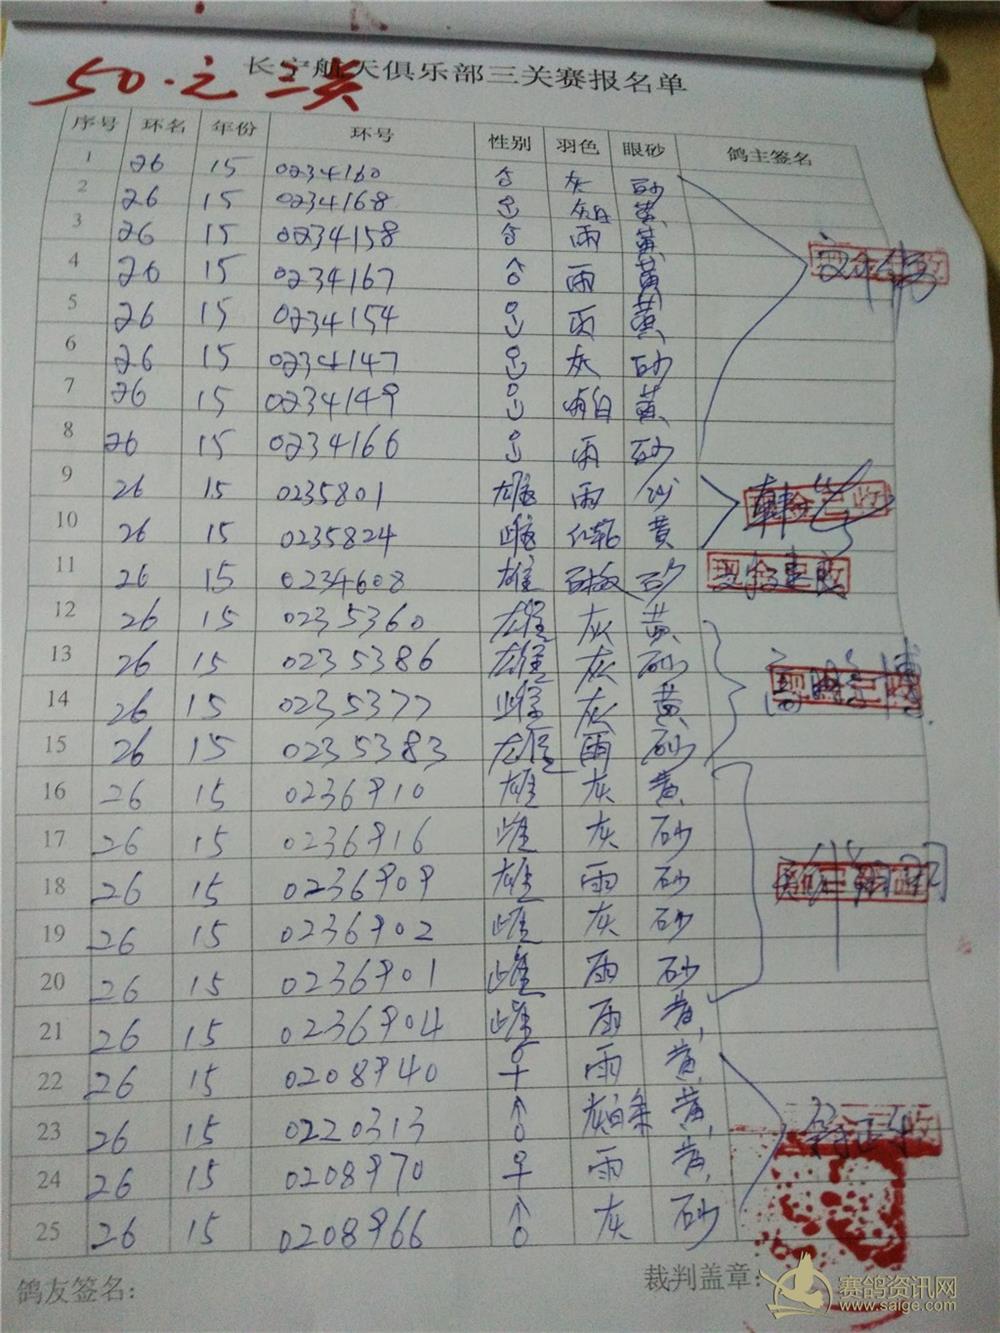 长宁航天俱乐部三关赛报名单
50.元 三关
序号 环名 年份 环号 性别 羽色 眼砂 鸽主签名
1 26 15 0234160 灰 砂
2 26 15 0234168 黄
3 26 15 0234158 雨 黄
4 26 15 0234167 雨 黄
5 26 15 0234154 雨 黄
6 26 15 0234147 灰 砂
7 26 15 0234149 黄
8 26 15 0234166 雨 砂
9 26 15 0235801 雄 雨 砂
10 26 15 0235824 雌 黄
11 26 15 0234608 雄 砂
12 26 15 0235360 雄 灰 黄
13 26 15 0235386 雄 灰 砂
14 26 15 0235377 雌 灰 黄
15 26 15 0235383 雄 雨 砂
16 26 15 0236910 雄 灰 黄
17 26 15 0236916 雌 灰 砂
18 26 15 0236909 雄 雨 砂
19 26 15 0236902 雌 灰 砂
20 26 15 0236901 雌 雨 砂
21 26 15 0236904 雌 雨 黄
22 26 15 0208940 ♀ 雨 黄
23 26 15 0220313 灰白条 黄
24 26 15 0208970 ♀ 雨 黄
25 26 15 0208966 灰 砂
鸽友签名: 裁判盖章:
赛鸽资讯网
www.saige.com